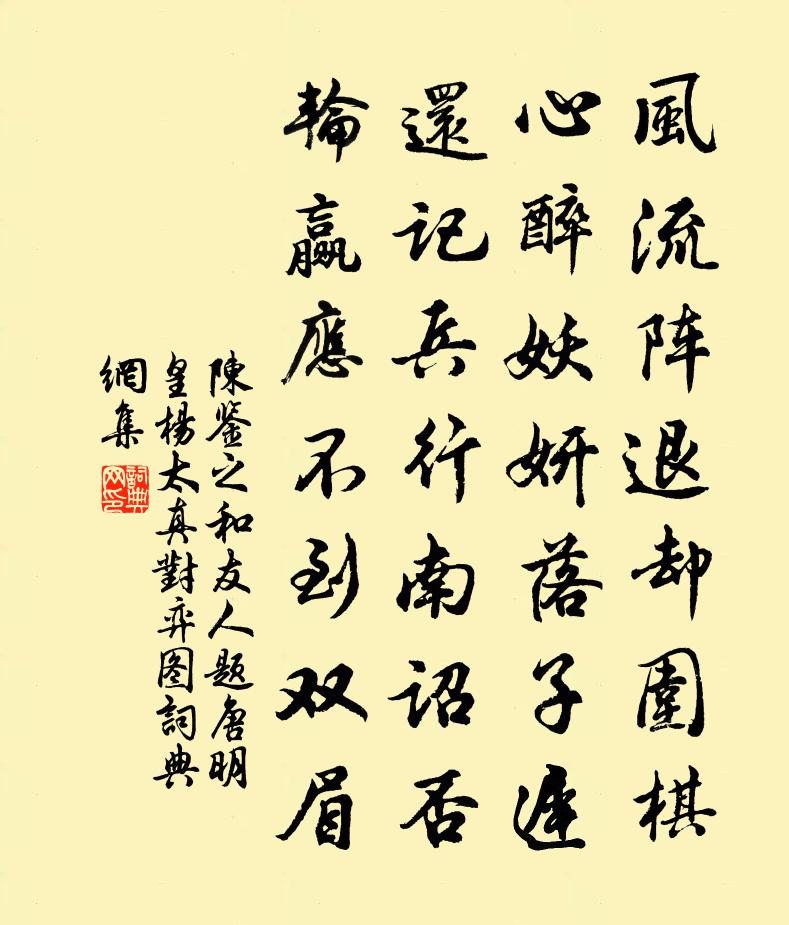 風流阵退却圍棋
心醉妖妍落子遲
還記兵行南詔否
輪贏應不到双眉
陳鉴之和友人題唐明
皇楊太真對弈图詞典
網集
詞典
网印